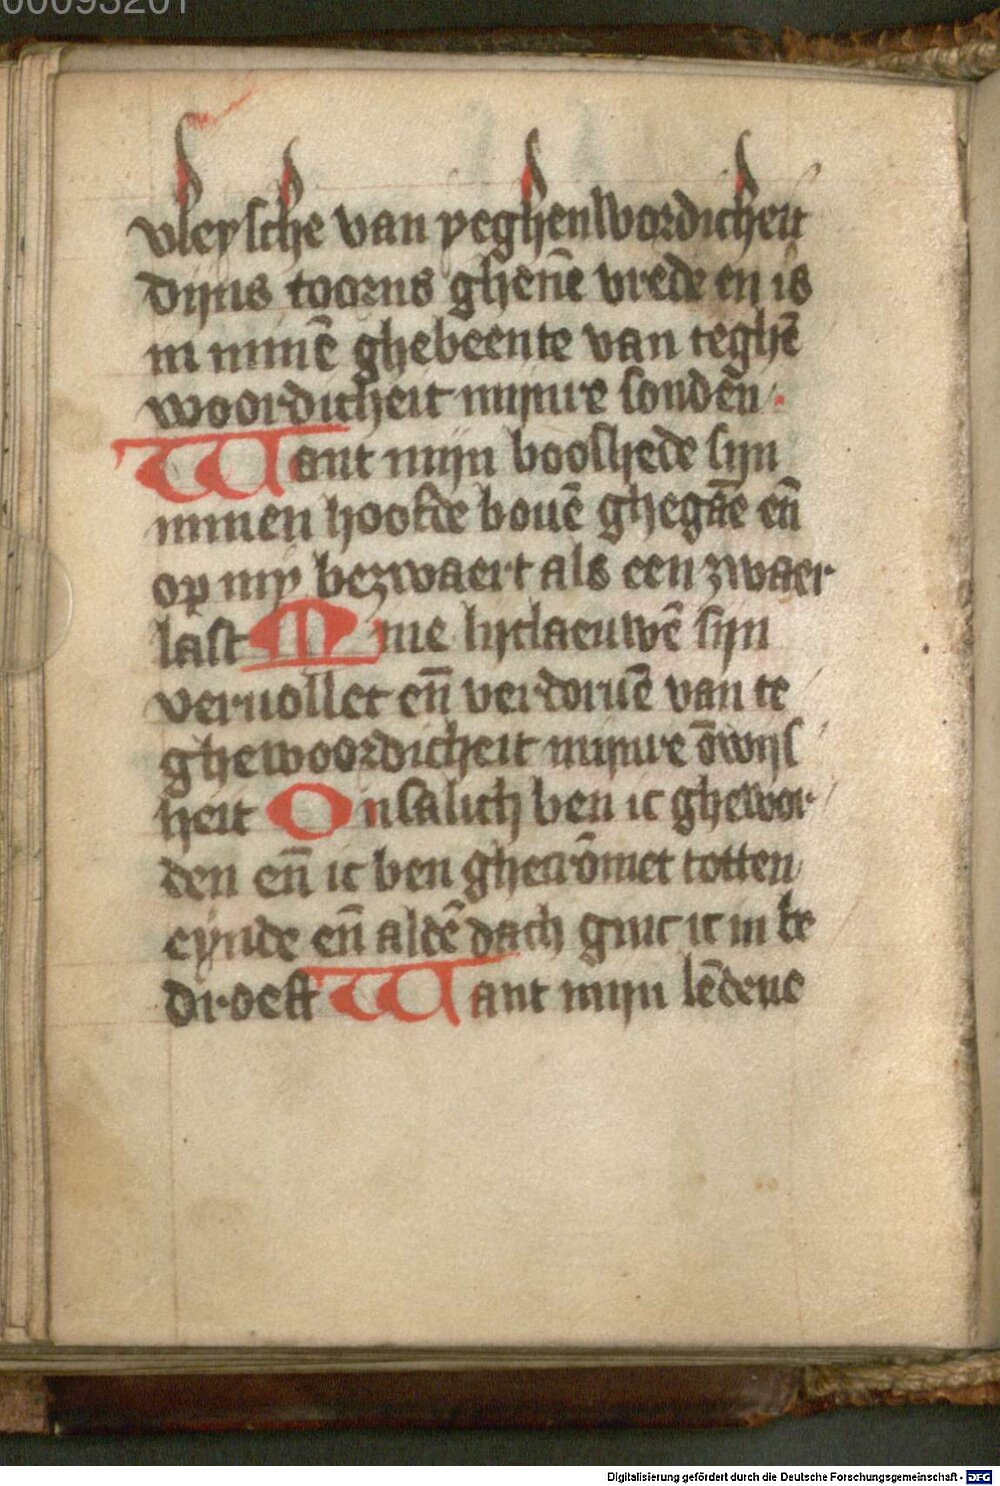 00093201
vleysche van yeghenwordicheit
dijns toorns ghene̅ vrede en is
in mine̅ ghebeente van teghe̅
woordicheit mijnre sonde̅n.
Want mijn booshede sijn
minen hoofde boue̅ ghega̅e en̅
op mij bezwaert als een zwaer
last Mine lijclaeuwe̅ sijn
veruollet en̅ verdorue̅ van te
ghewoordicheit mijnre o̅wijs
heit Onsalich ben ic ghewor
den en̅ ic ben ghecro̅met totten
eynde en̅ alde̅ dach ginc ic in be
droeft Want mijn le̅dene
Digitalisierung gefördert durch die Deutsche Forschungsgemeinschaft - DFG